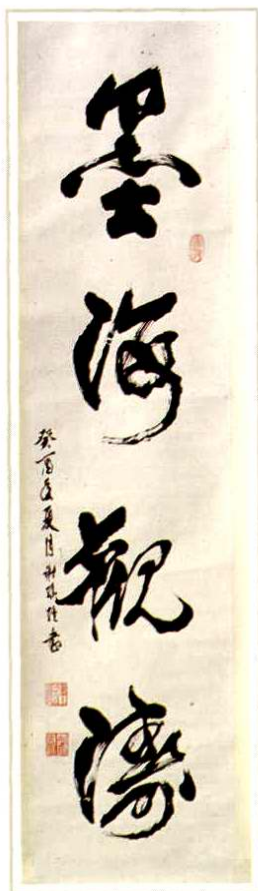 墨海觀濤
癸酉年夏月 書